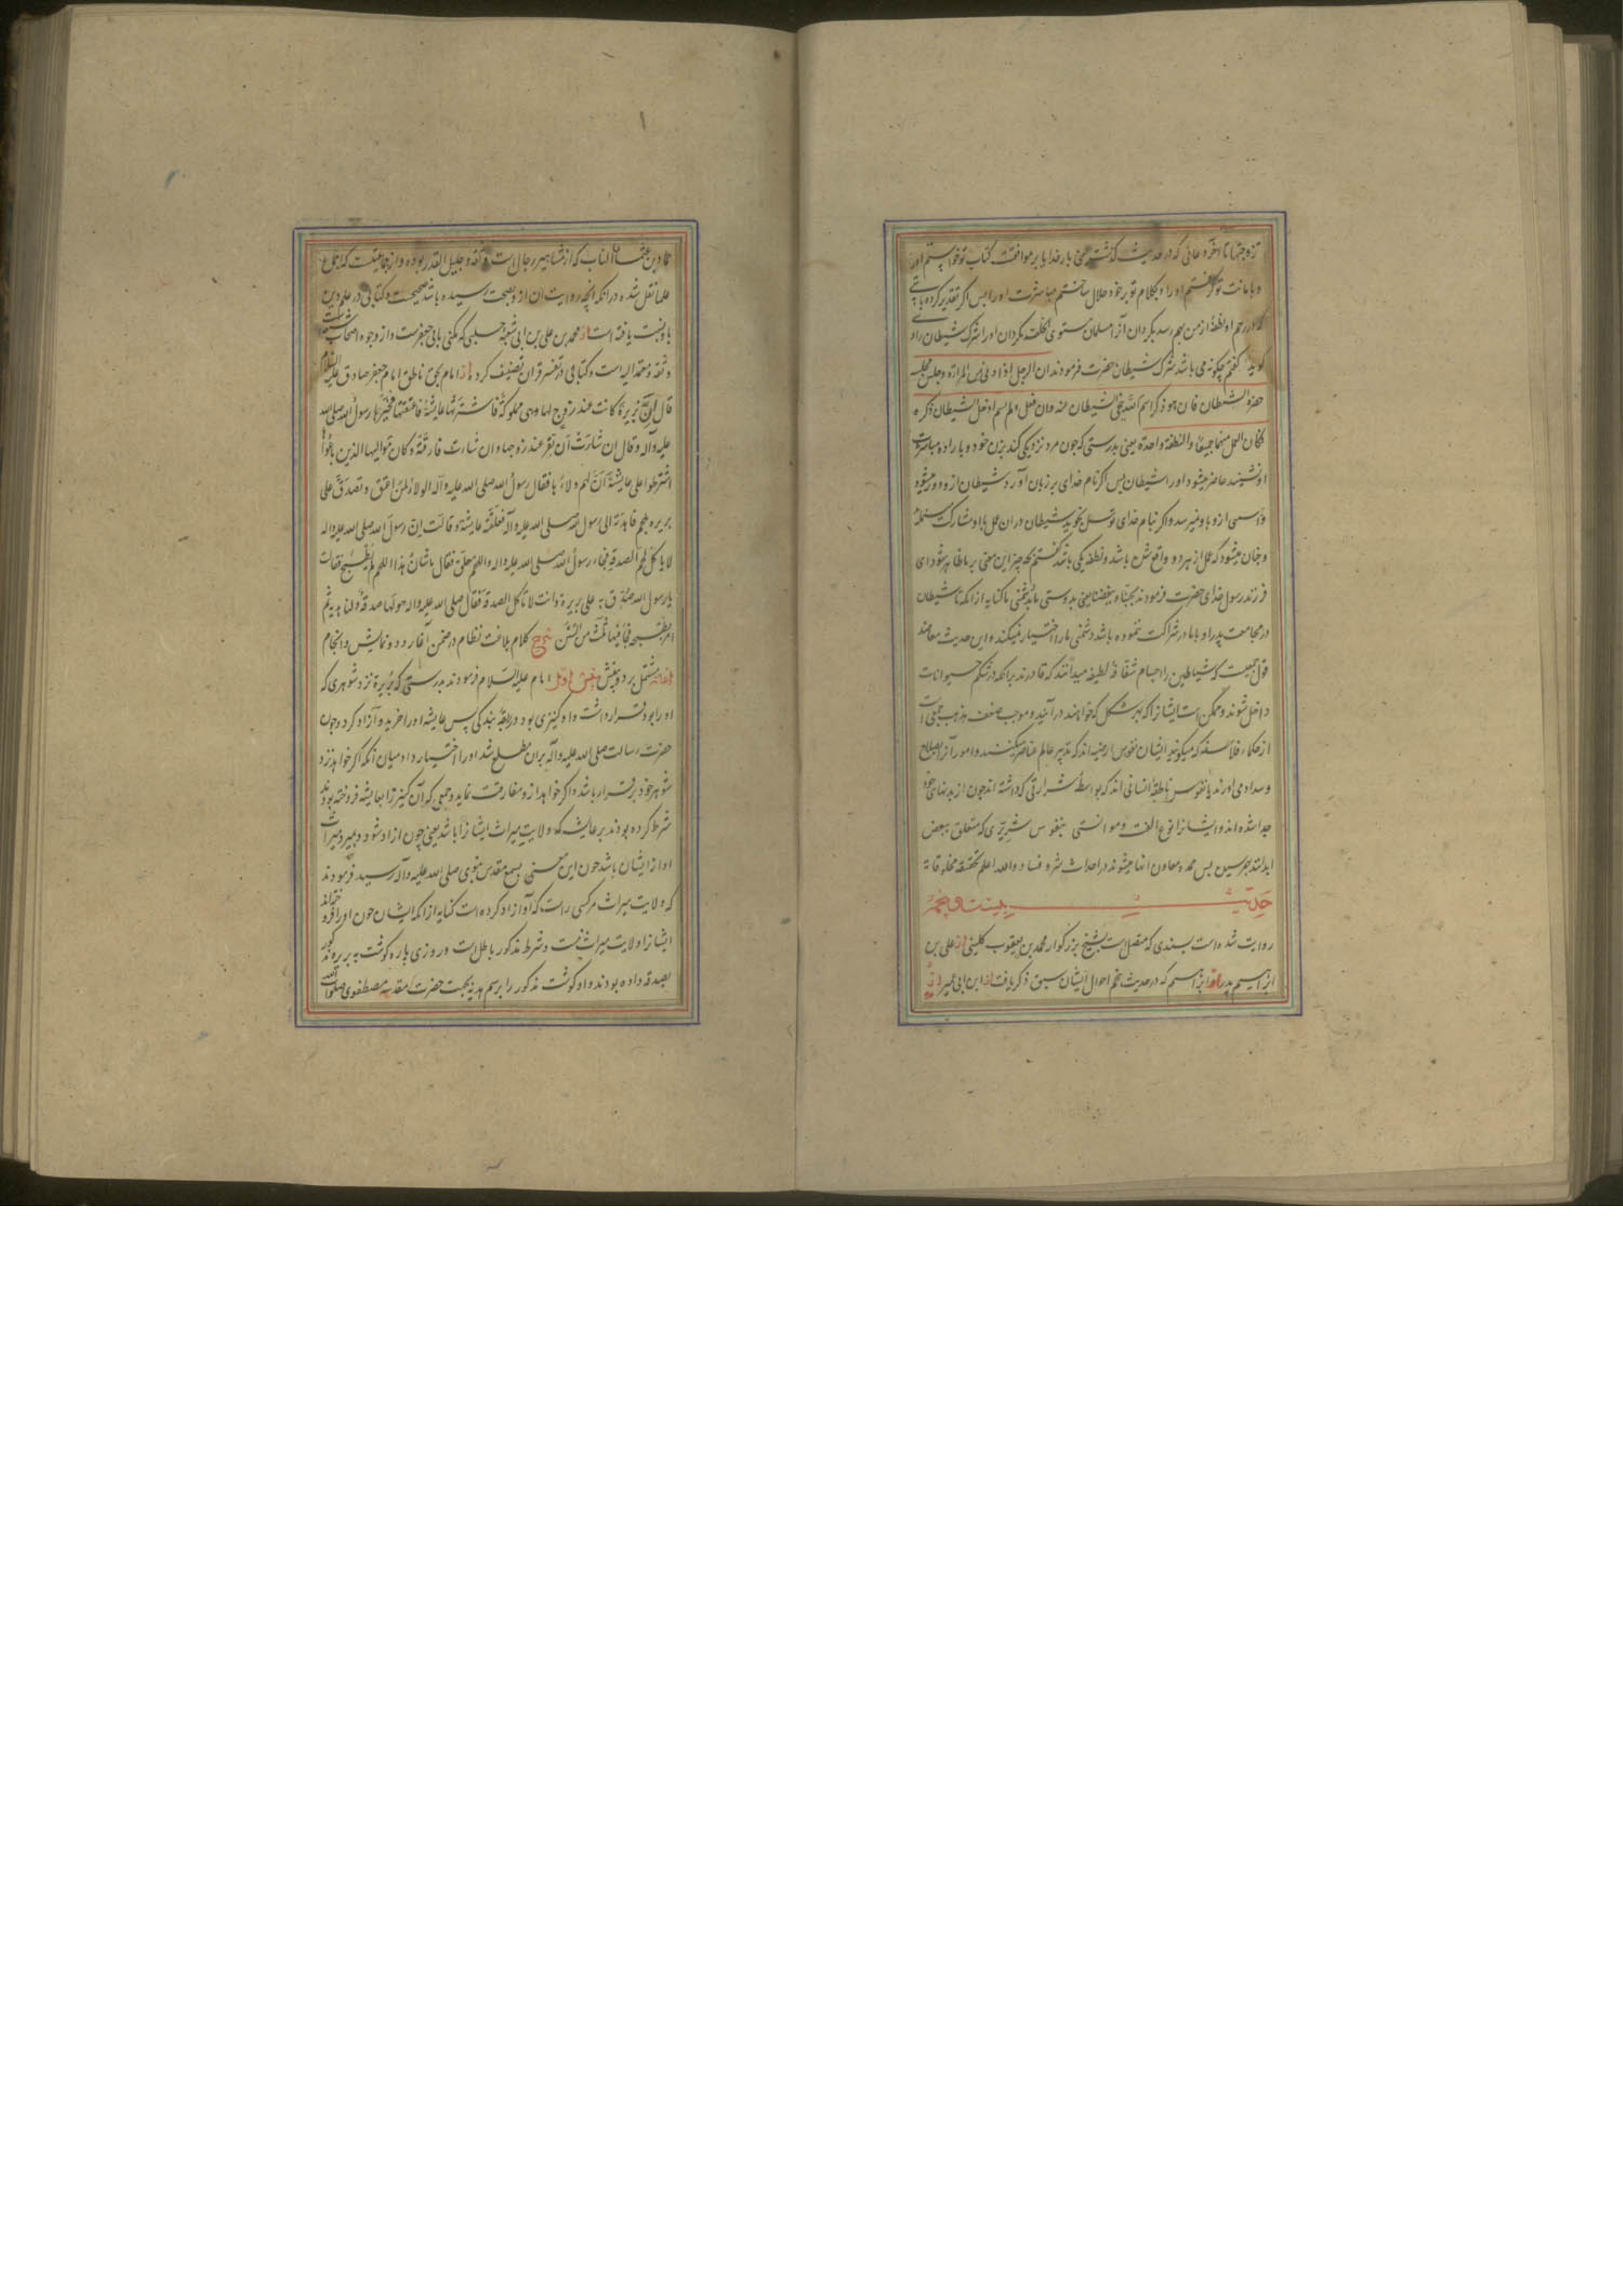 تزوجتها تا آخر دعائی که در حدیث گذشت یعنی بار خدایا بر موافقت کتاب تو خواستم او را
و بامانت تو گرفتم او را و بکلام تو بر خود حلال ساختم مباشرت او را پس اگر تقدیر کرده باشی
که در رحم او نطفهٔ از من بهم رسد بگردان آنرا مسلمان مستوی الخلقه و مگردان او را شرک شیطان راوی
گوید گفتم چگونه می باشد شرک شیطان حضرت فرمودند ان الرجل اذا دنی من المراة و جلس مجلسه
حضره الشیطان فان هو ذکر اسم الله تنحی الشیطان عنه و ان فعل و لم یسم ادخل الشیطان ذکره
فکان العمل منهما جمیعا و النطفة واحدة یعنی بدرستی که چون مرد نزدیکی کند بزن خود و باراده مباشرت
او نشیند حاضر میشود او را شیطان پس اگر نام خدای بر زبان آورد شیطان ازو دور میشود
و آسیبی ازو باو نمیرسد و اگر بنام خدای توسل نجوید شیطان در آن عمل با او مشارکت میکند
و چنان میشود که عمل از هر دو واقع شده باشد و نطفه یکی باشد گفتم بچه چیز این معنی بر ما ظاهر میشود ای
فرزند رسول خدای حضرت فرمودند بحبنا و بغضنا یعنی بدوستی ما و بدشمنی ما کنایه از آنکه تا شیطان
در مجامعت پدر او با مادر شراکت ننموده باشد دشمنی ما را اختیار نمیکند و این حدیث معاضد
قول جمعیست که شیاطین را اجسام شفافهٔ لطیفه میدانند که قادرند بر آنکه در شکم حیوانات
داخل شوند و ممکن است ایشانرا که بهر شکل که خواهند در آیند و موجب ضعف مذهب جمعی است
از حکماء فلاسفه که میگویند ایشان نفوس ارضیه اند که تدبیر عالم عناصر میکنند و امور آنرا بصلاح
و سداد می آورند یا نفوس ناطقهٔ انسانی اند که بواسطهٔ شرارتی که داشته اند چون از بدنهای خود
جدا شده اند و ایشانرا نوع الفت و موانستی بنفوس شریری که متعلق ببعض
ابدانند بهم رسیده پس ممد و معاون آنها میشوند در احداث شر و فساد و الله اعلم بحقیقة مخلوقاته
حدیث بیست و پنجم
روایت شده است بسندی که متصل است بشیخ بزرگوار محمد بن یعقوب کلینی از علی بن
ابراهیم از پدر او ابراهیم که در حدیث پنجم احوال ایشان سبق ذکر یافت از ابن ابی عمیر از
حماد بن عثمان الناب که از مشاهیر رجال است و ثقه و جلیل القدر بوده و از جماعتیست که اجماع
علما نقل شده در آنکه آنچه روایت آن ازو بصحت رسیده باشد صحیحست و کتابی در علم دین
باو نسبت یافته است از محمد بن علی بن ابی شعبه حلبی که مکنی بابی جعفرست و از وجوه اصحاب
و ثقه و معتمد الیه است و کتابی در تفسیر قرآن تصنیف کرده از امام بحق ناطق امام جعفر صادق علیه السلام
قال ان بریرة کانت عند زوج لها و هی مملوکة فاشترتها عایشة فاعتقتها فخیرها رسول الله صلی الله
علیه و آله و قال ان شاءت ان تقر عند زوجها و ان شاءت فارقته و کان موالیها الذین باعوها
اشترطوا علی عایشة ان لهم ولاءها فقال رسول الله صلی الله علیه و آله الولاء لمن اعتق و تصدق علی
بریره بلحم فاهدته الی رسول الله صلی الله علیه و آله فعلقته عایشة و قالت ان رسول الله صلی الله علیه و اله
لا یاکل لحم الصدقة فجاء رسول الله صلی الله علیه و اله و اللحم معلق فقال ما شان هذا اللحم لم یطبخ فقالت
یا رسول الله صدق به علی بریرة و انت لا تاکل الصدقة فقال صلی الله علیه و اله هو لها صدقة و لنا هدیة ثم
امر بطبخه فجاء فیها ثلث من السنن شرح کلام بلاغت نظام در ضمن آغاز دو نمایش و انجام
مشتمل بر دو بخش بخش اول امام علیه السلام فرمودند بدرستی که بریرة نزد شوهری که
او را بود قرار داشت و او کنیزی بود در ربقهٔ بندگی پس عایشه او را خرید و آزاد کرد و چون
حضرت رسالت صلی الله علیه و آله بر آن مطلع شد او را اختیار داد میان آنکه اگر خواهد نزد
شوهر خود برقرار باشد و اگر خواهد ازو مفارقت نماید و جمعی که آن کنیز را بعایشه فروخته بودند
شرط کرده بودند بر عایشه که ولایت میراث ایشانرا باشد یعنی چون آزاد شود و بمیرد میراث
او از ایشان باشد چون این سخن بسمع مقدس نبوی صلی الله علیه و آله رسید فرمودند
که ولایت میراث مر کسی راست که او آزاد کرده است کنایه از آنکه ایشان چون او را فروخته اند
ایشانرا ولایت میراث نیست و شرط مذکور باطل است و روزی پاره گوشت ببریره
بصدقه داده بودند و او گوشت مذکور را برسم هدیه بجهت حضرت مقدسهٔ مصطفوی